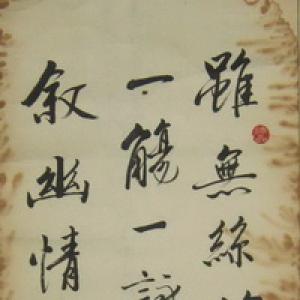 雖無絲
一觴一詠
叙幽情